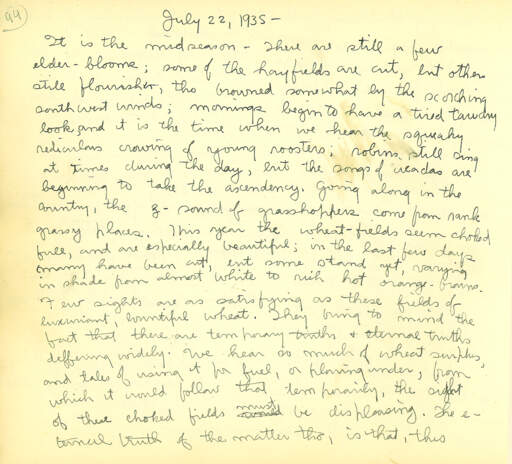 99
July 22, 1935 -
It is the midseason - There are still a few
elder-blooms; some of the hayfields are cut, but others
still flourish, tho browned somewhat by the scorching
southwest winds; mornings begin to have a tired tawdry
look, and it is the time when we hear the squeaky
rediculous crowing of young roosters; robins still sing
at times during the day, but the songs of cicadas are
beginning to take the ascendency. Going along in the
country, the z- sound of grasshoppers come from rank
grassy places. This year the wheat-fields seem choked
full, and are especially beautiful; in the last few days
many have been cut, but some stand yet, varying
in shade from almost white to rich hot orange-browns.
Few sights are as satisfying as these fields of
luxuriant, bountiful wheat. They bring to mind the
fact that there are temporary truths & eternal truths
deffering widely. We hear so much of wheat surplus,
and tales of using it for fuel, or plowing under, from
which it would follow that temporarily, the sight
of these choked fields must be displeasing. The e-
ternal truth of the matter tho, is that, this